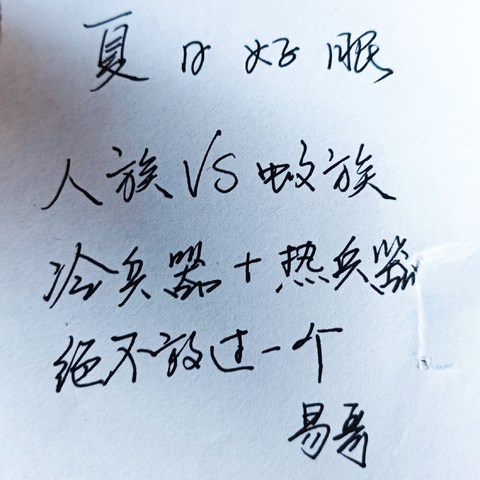 夏日好眠
人族VS蚊族
冷兵器+热兵器
绝不放过一个
易哥